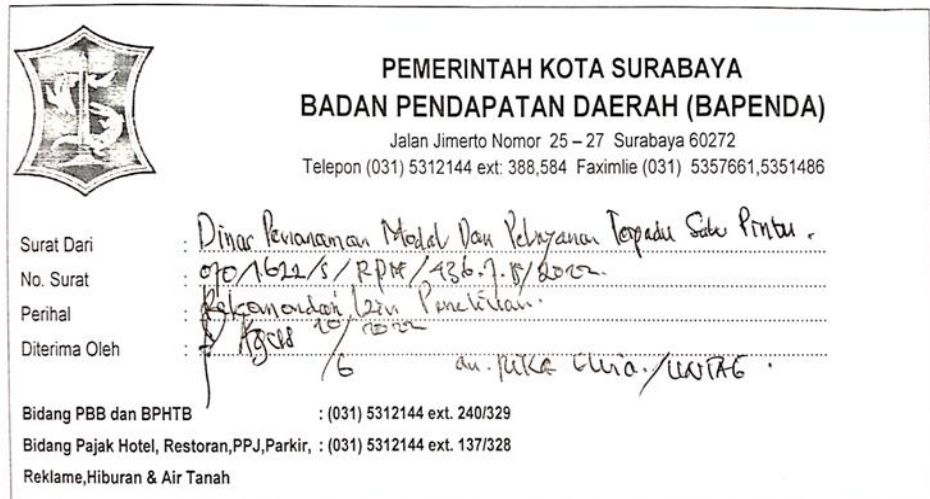 PEMERINTAH KOTA SURABAYA
BADAN PENDAPATAN DAERAH (BAPENDA)
Jalan Jimerto Nomor 25 – 27 Surabaya 60272
Telepon (031) 5312144 ext: 388,584 Faximlie (031) 5357661,5351486
Surat Dari : Dinas Penanaman Modal Dan Pelayanan Terpadu Satu Pintu.
No. Surat : 070/1622/S/RPM/436.7.15/2022.
Perihal : Rekomendasi Izin Penelitian.
Diterima Oleh : Agus 20/2022
/6 an. Rika /UNTAG.
Bidang PBB dan BPHTB : (031) 5312144 ext. 240/329
Bidang Pajak Hotel, Restoran,PPJ,Parkir, : (031) 5312144 ext. 137/328
Reklame,Hiburan & Air Tanah